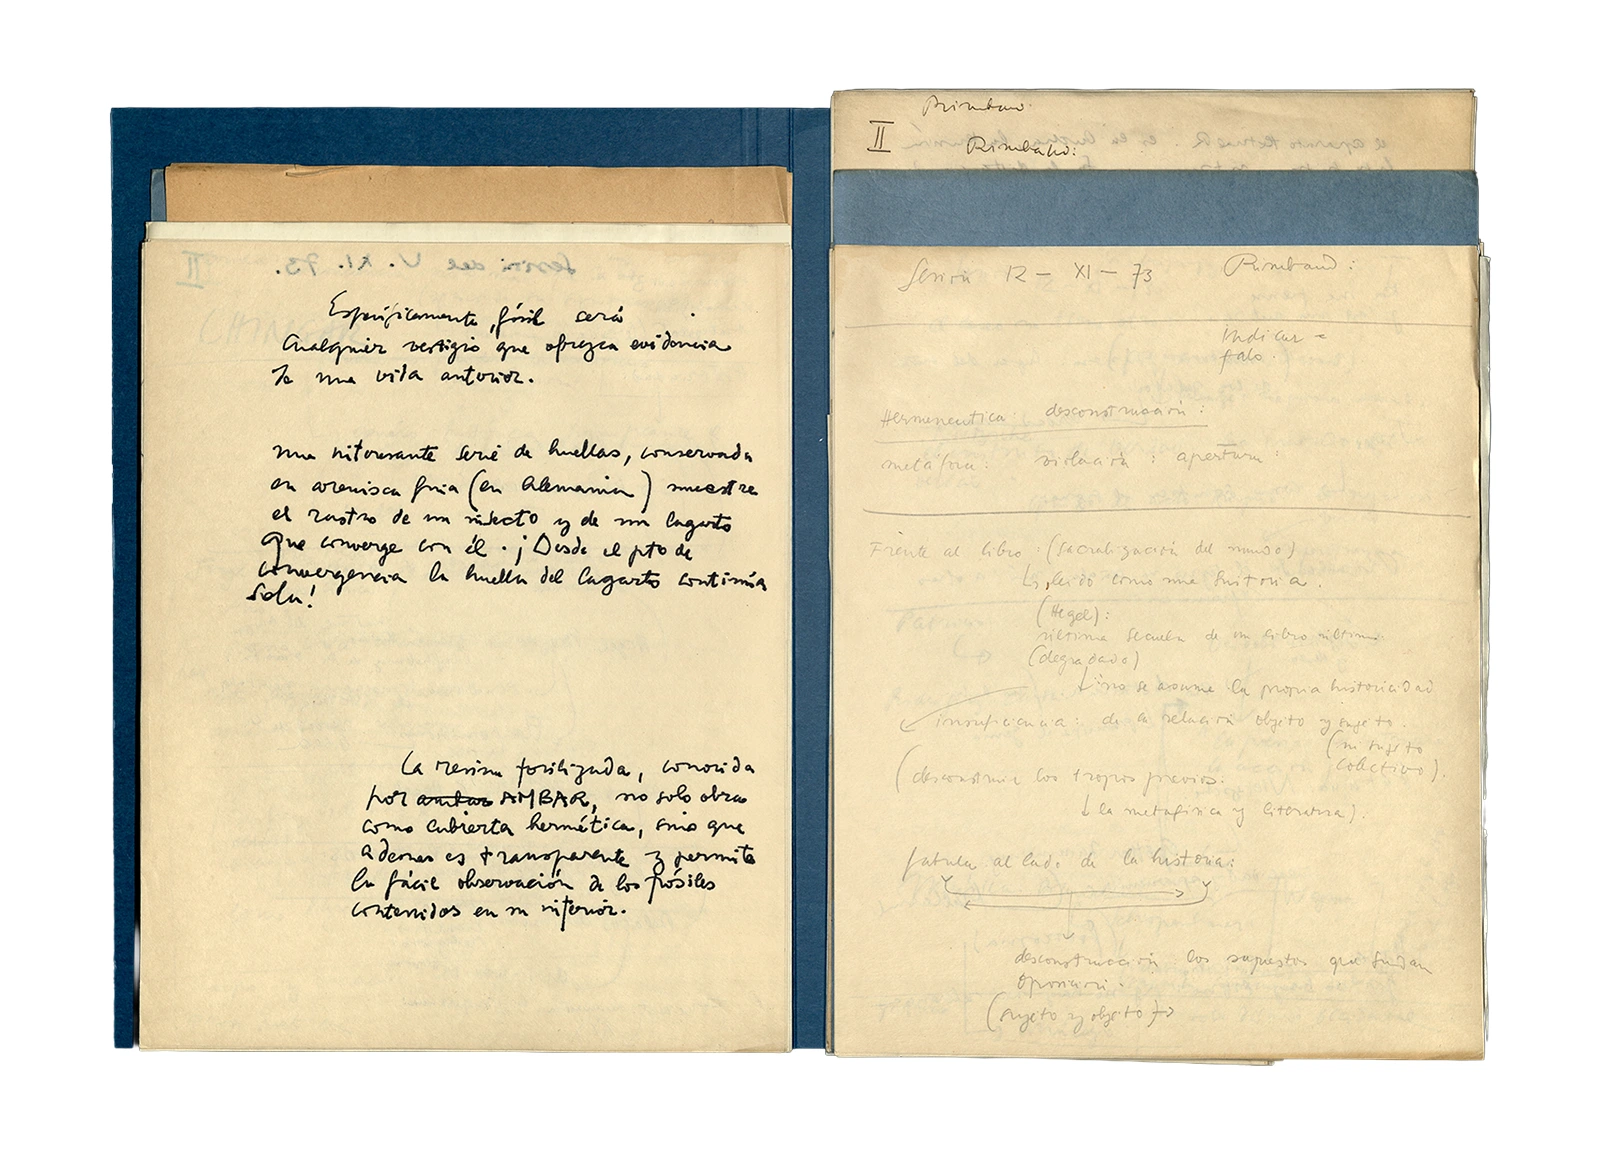 Específicamente, fósil será
Cualquier vestigio que ofrezca evidencia
de una vida anterior.
una interesante serie de huellas, conservada
en arenisca fina (en Alemania) muestra
el rastro de un insecto y de un lagarto
que converge con él. ¡Desde el pto de
convergencia la huella del lagarto continúa
sola!
La resina fosilizada, conocida
por ambar AMBAR, no solo obra
como cubierta hermética, sino que
ademas es transparente y permite
la fácil observación de los fósiles
contenidos en su interior.
Rimbaud
II Rimbaud:
Sesión 12 – XI – 73 Rimbaud:
Indicar =
falo.
Hermeneutica: desconstrucción:
metáfora: violación: apertura:
Frente al libro: (sacralización del mundo)
leido como una historia.
(Hegel):
última secuela de un libro último
(degradado)
no se asume la propia historicidad
insuficiencia: de la relación objeto y sujeto.
(un sujeto
colectivo).
(desconstruir los tropos previos:
la metafísica y literatura).
fabula al lado de la historia:
desconstrucción los supuestos que fundan
oposición.
(sujeto y objeto)
Sesión del V. XI. 73. II